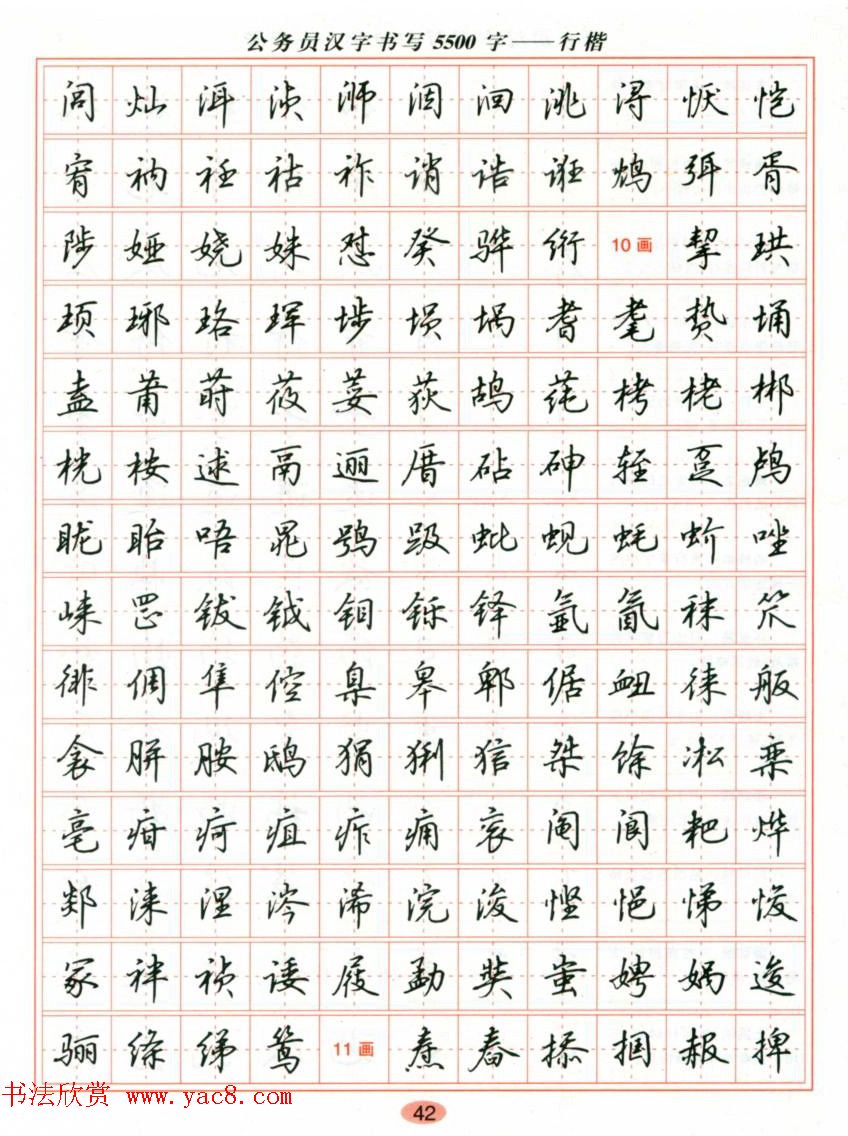 公务员汉字书写5500字——行楷
闾 灿 洱 浈 浉 洇 洄 洮 浔 恹 恺
宥 衲 衽 祜 祚 诮 诰 诳 鸩 弭 胥
陟 娅 娆 姝 怼 癸 骅 绗 10画 挈 珙
顼 珋 珞 珲 埗 埙 埚 耆 耄 贽 埇
盍 莆 莳 莜 荽 荻 鸪 莼 栲 栳 郴
桄 桉 逑 鬲 逦 厝 砧 砷 轾 趸 鸬
眬 眙 唔 晁 鸮 趿 蚍 蚬 蚝 蚧 唑
崃 罡 钹 钺 钼 铄 铎 氩 氤 秣 笊
徘 倜 隼 倥 臬 皋 郫 倨 衄 徕 舨
衾 胼 胺 鸱 狷 猁 狺 桀 馀 凇 栾
亳 疳 疴 疽 痄 痈 衮 阄 阆 耙 烨
郯 涞 涅 涔 浠 浣 浚 悭 悒 悌 悛
冢 袢 祯 诿 屐 勐 奘 蚩 娉 娲 逡
骊 绦 绨 鸶 11画 焘 舂 掭 掴 赧 捭
书法欣赏 www.yac8.com
42